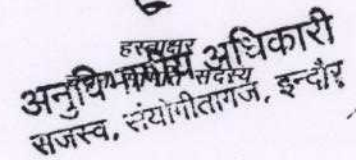 हस्ताक्षर
अनुविभागीय अधिकारी
सदस्य
राजस्व, संयोगीतागज, इन्दौर